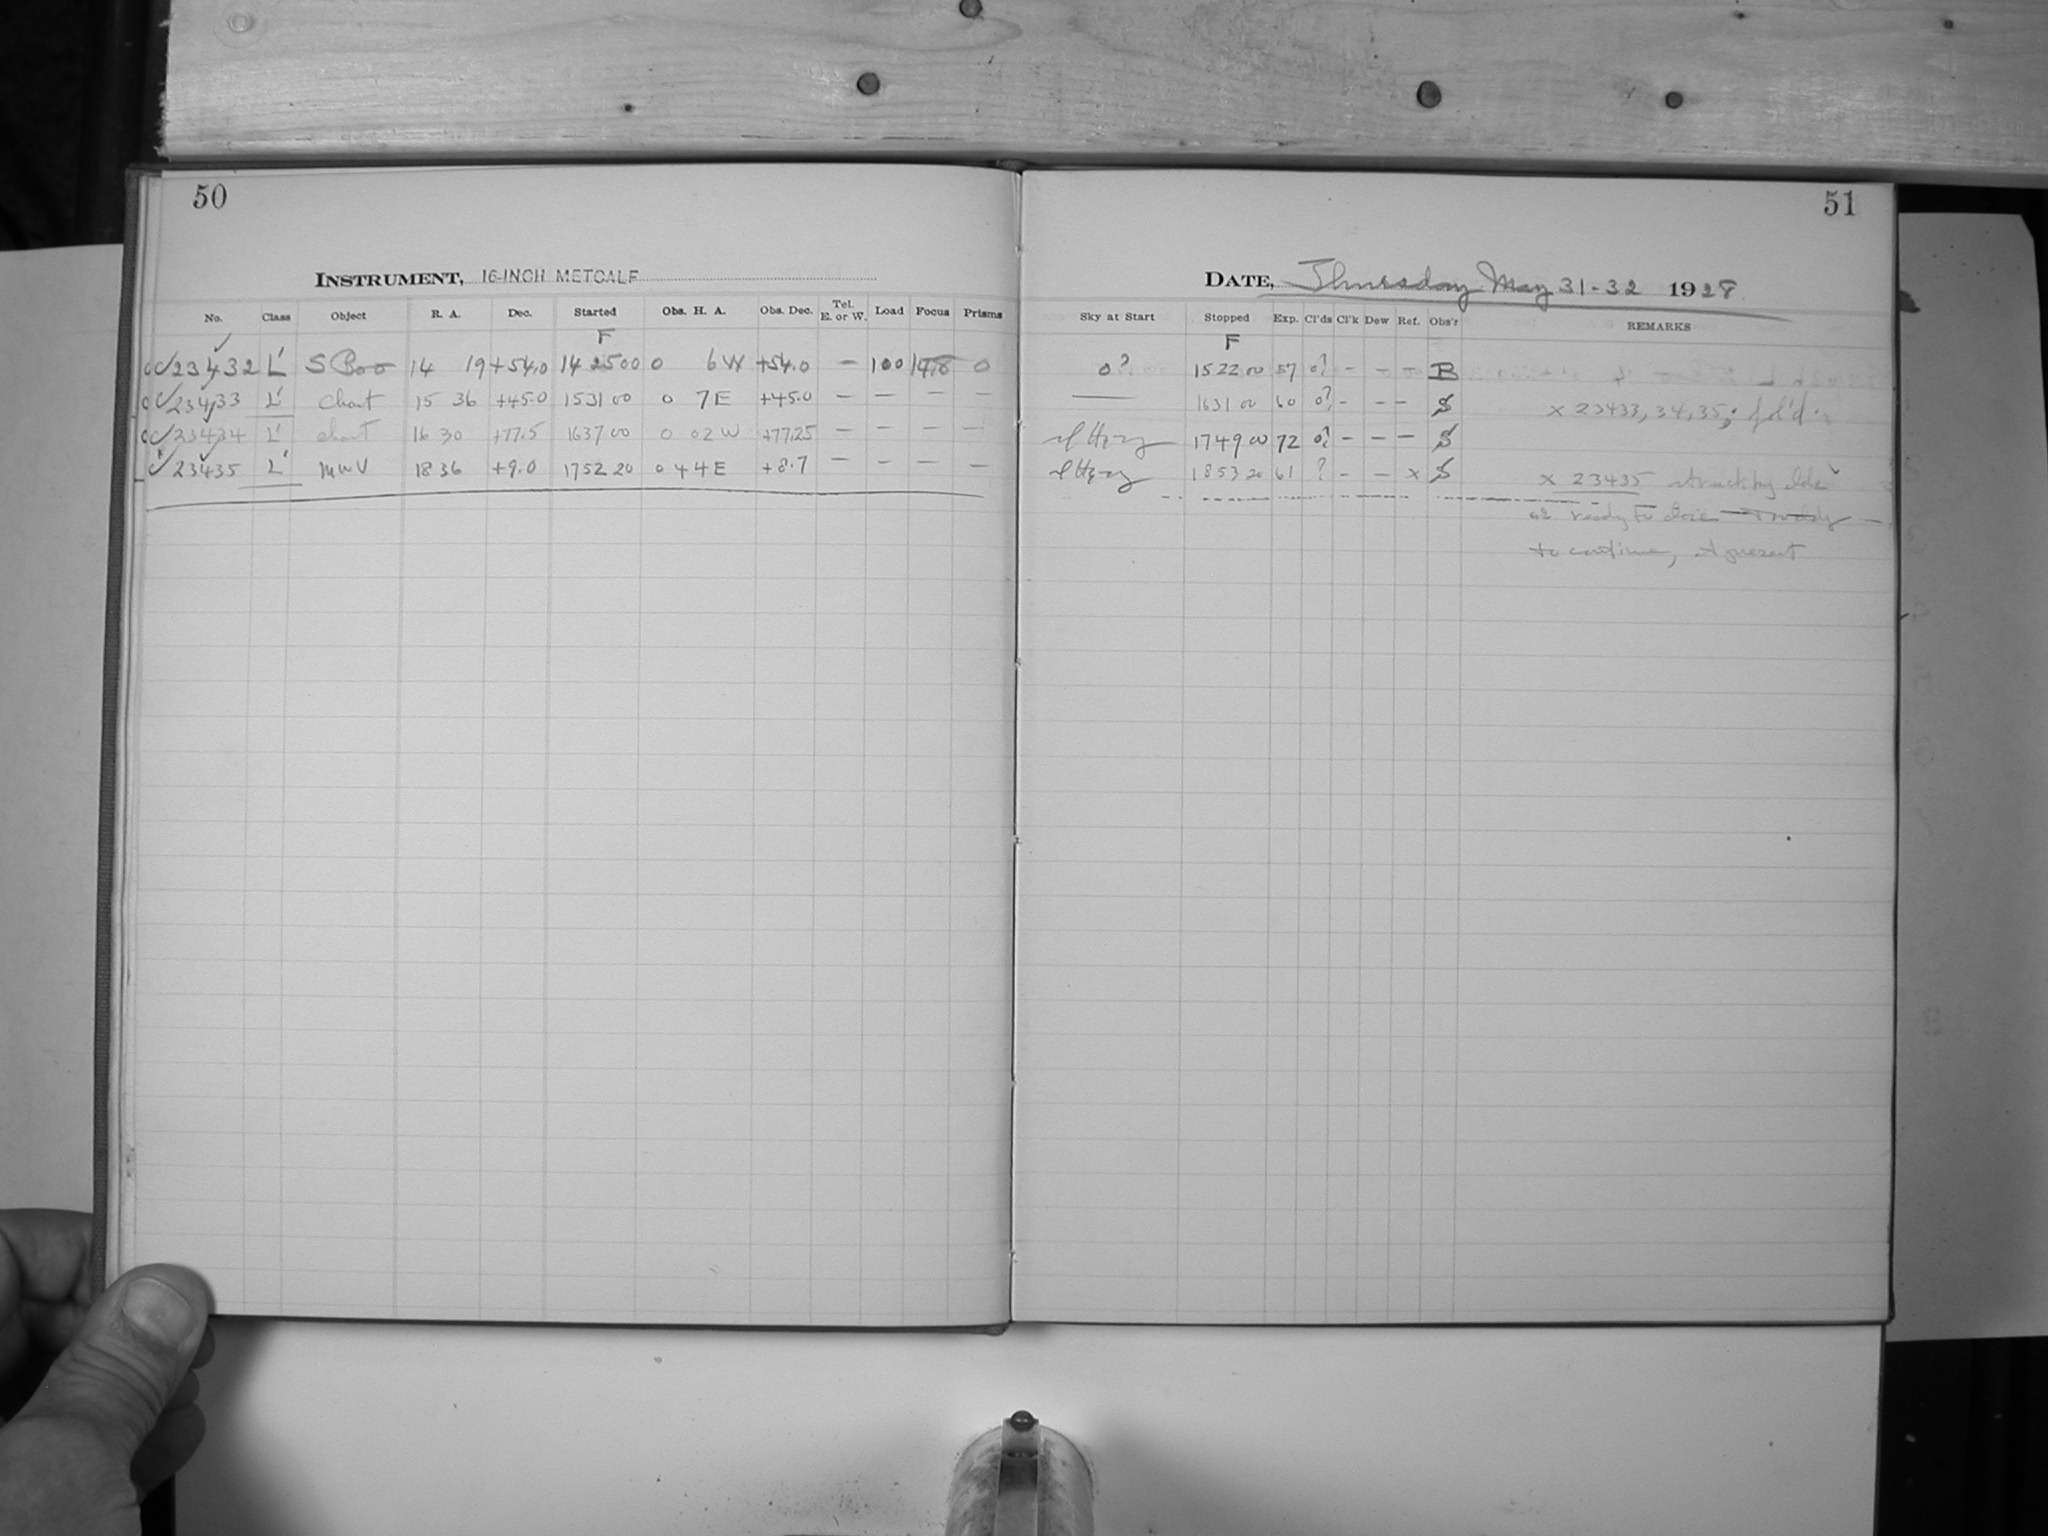 50
51
INSTRUMENT, 16-INCH METCALF
DATE, Thursday May 31-32 1928
No. Class Object R. A. Dec. Started Obs. H. A. Obs. Dec. Tel. E. or W. Load Focus Prisms
Sky at Start Stopped Exp. Cl'ds Cl'k Dew Ref. Obs'r REMARKS
F
F
✓23432 L' S Boo 14 19 +54.0 14 25 00 0 6 W +54.0 — 100 0
0? 15 22 00 57 0? - - - B
✓23433 L' Chart 15 36 +45.0 15 31 00 0 7 E +45.0 — — — —
— 16 31 00 60 0? - - - S
x 23433, 34, 35;
✓23434 L' chart 16 30 +77.5 16 37 00 0 02 W +77.25 — — — —
17 49 00 72 0? - - - S
✓23435 L' MWV 18 36 +9.0 17 52 20 0 44 E +8.7 — — — —
18 53 20 61 ? - - x S
x 23435 struck by
ready to close
to continue, at present